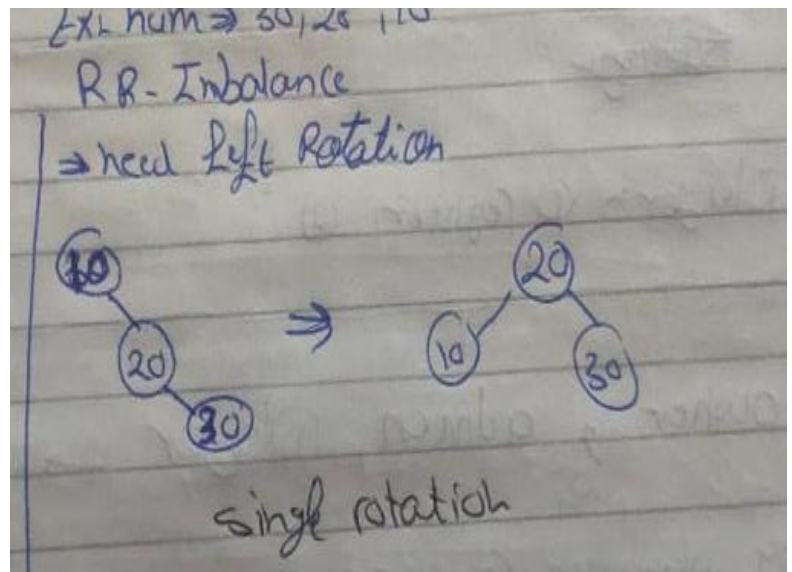 Ex1 num ⇒ 30, 20, 10
RR-Inbalance
⇒ need Left Rotation
10
20
20
10
30
30
single rotation